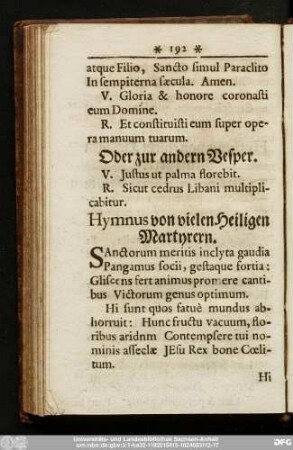 * 192 *
atque Filio, Sancto simul Paraclito
In sempiterna sæcula. Amen.
V. Gloria & honore coronasti
eum Domine.
R. Et constituisti eum super ope-
ra manuum tuarum.
Oder zur andern Vesper.
V. Justus ut palma florebit.
R. Sicut cedrus Libani multipli-
cabitur.
Hymnus von vielen Heiligen
Martyrern.
SAnctorum meritis inclyta gaudia
Pangamus socii, gestaque fortia:
Gliscens fert animus promere canti-
bus Victorum genus optimum.
Hi sunt quos fatuè mundus ab-
horruit: Hunc fructu vacuum, flo-
ribus aridnm Contempsere tui no-
minis asseclæ JEsu Rex bone Cœli-
tum.
Hi
Universitäts- und Landesbibliothek Sachsen-Anhalt
DFG